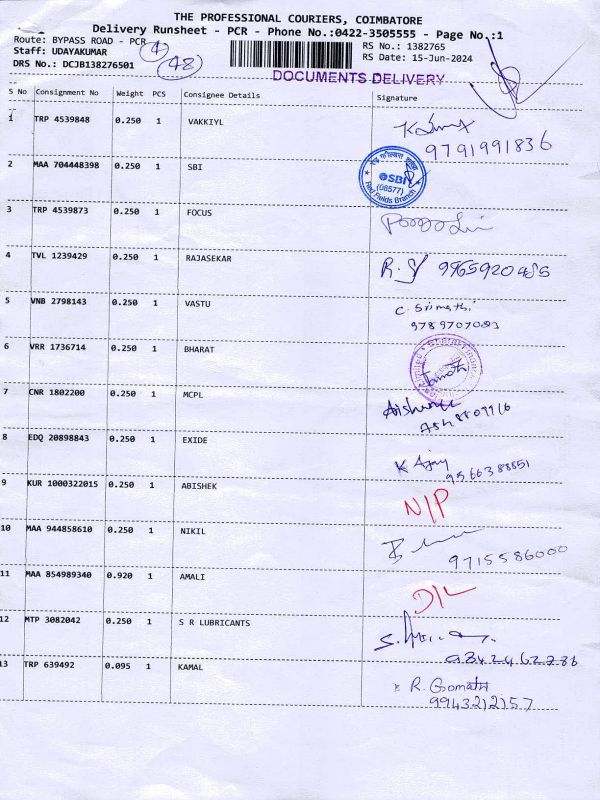 THE PROFESSIONAL COURIERS, COIMBATORE
Delivery Runsheet - PCR - Phone No.:0422-3505555 - Page No.:1
Route: BYPASS ROAD - PCR
RS No.: 1382765
Staff: UDAYAKUMAR
RS Date: 15-Jun-2024
DRS No.: DCJB138276501
48
DOCUMENTS DELIVERY
S No Consignment No Weight PCS Consignee Details Signature
1 TRP 4539848 0.250 1 VAKKIYL
9791991836
2 MAA 704448398 0.250 1 SBI
SBI
(08577)
Red Fields Branch
3 TRP 4539873 0.250 1 FOCUS
4 TVL 1239429 0.250 1 RAJASEKAR
9965920485
5 VNB 2798143 0.250 1 VASTU C. Srimathi
9789707083
6 VRR 1736714 0.250 1 BHARAT
7 CNR 1802200 0.250 1 MCPL
8 EDQ 20898843 0.250 1 EXIDE
K Ajay
9566388851
9 KUR 1000322015 0.250 1 ABISHEK
N/P
10 MAA 944858610 0.250 1 NIKIL
9715586000
11 MAA 854989340 0.920 1 AMALI
D/L
12 MTP 3082042 0.250 1 S R LUBRICANTS
13 TRP 639492 0.095 1 KAMAL
R. Gomathi
9943212157